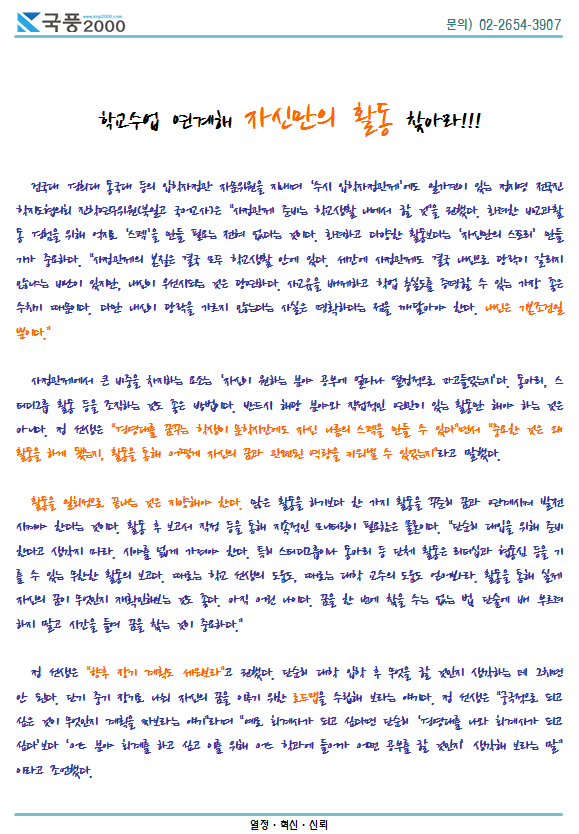 국풍2000
www.knp2000.com
문의) 02-2654-3907
학교수업 연계해 자신만의 활동 찾아라!!!
건국대 경희대 동국대 등의 입학사정관 자문위원을 지내며 '수시 입학사정관제'에도 일가견이 있는 정지영 전국진
학지도협의회 진학연구위원(부일고 국어교사)은 "사정관제 준비는 학교생활 내에서 할 것"을 권했다. 화려한 비교과활
동 경험을 위해 억지로 '스펙'을 만들 필요는 전혀 없다는 것이다. 화려하고 다양한 활동보다는 '자신만의 스토리' 만들
기가 중요하다. "사정관제의 본질은 결국 모두 학교생활 안에 있다. 세간에 사정관제도 결국 내신으로 당락이 갈리지
않냐는 비난이 있지만, 내신이 우선시되는 것은 당연하다. 사교육을 배제하고 학업 충실도를 증명할 수 있는 가장 좋은
수치기 때문이다. 다만 내신이 당락을 가르지 않는다는 사실은 명확하다는 점을 깨달아야 한다. 내신은 기본조건일
뿐이다."
사정관제에서 큰 비중을 차지하는 요소는 '자신이 원하는 분야 공부에 얼마나 열정적으로 파고들었는지'다. 동아리, 스
터디그룹 활동 등을 조직하는 것도 좋은 방법이다. 반드시 해당 분야와 직접적인 연관이 있는 활동만 해야 하는 것은
아니다. 정 선생은 "경영대를 꿈꾸는 학생이 문학시간에도 자신 나름의 스펙을 만들 수 있다"면서 "중요한 것은 왜
활동을 하게 됐는지, 활동을 통해 어떻게 자신의 꿈과 관련된 역량을 키워낼 수 있었는지"라고 말했다.
활동을 일회성으로 끝내는 것은 지양해야 한다. 많은 활동을 하기보다 한 가지 활동을 꾸준히 꿈과 연계시켜 발전
시켜야 한다는 것이다. 활동 후 보고서 작성 등을 통해 지속적인 모니터링이 필요함은 물론이다. "단순히 대입을 위해 준비
한다고 생각지 마라. 시야를 넓게 가져야 한다. 특히 스터디그룹이나 동아리 등 단체 활동은 리더십과 협동심 등을 기
를 수 있는 무한한 활동의 보고다. 때로는 학교 선생의 도움도, 때로는 대학 교수의 도움도 얻어봐라. 활동을 통해 실제
자신의 꿈이 무엇인지 재확인해보는 것도 좋다. 아직 어린 나이다. 꿈을 한 번에 찾을 수는 없는 법. 단술에 배 부르려
하지 말고 시간을 들여 꿈을 찾는 것이 중요하다."
정 선생은 "향후 장기 계획도 세워보라"고 권했다. 단순히 대학 입학 후 무엇을 할 것인지 생각하는 데 그치면
안 된다. 단기 중기 장기로 나눠 자신의 꿈을 이루기 위한 로드맵을 수립해 보라는 얘기다. 정 선생은 "궁극적으로 되고
싶은 것이 무엇인지 계획을 짜보라는 얘기"라며 "예로 회계사가 되고 싶다면 단순히 '경영대를 나와 회계사가 되고
싶다'보다 '어느 분야 회계를 하고 싶고 이를 위해 어느 학과에 들어가 어떤 공부를 할 것인지' 생각해 보라는 말"
이라고 조언했다.
열정・혁신・신뢰